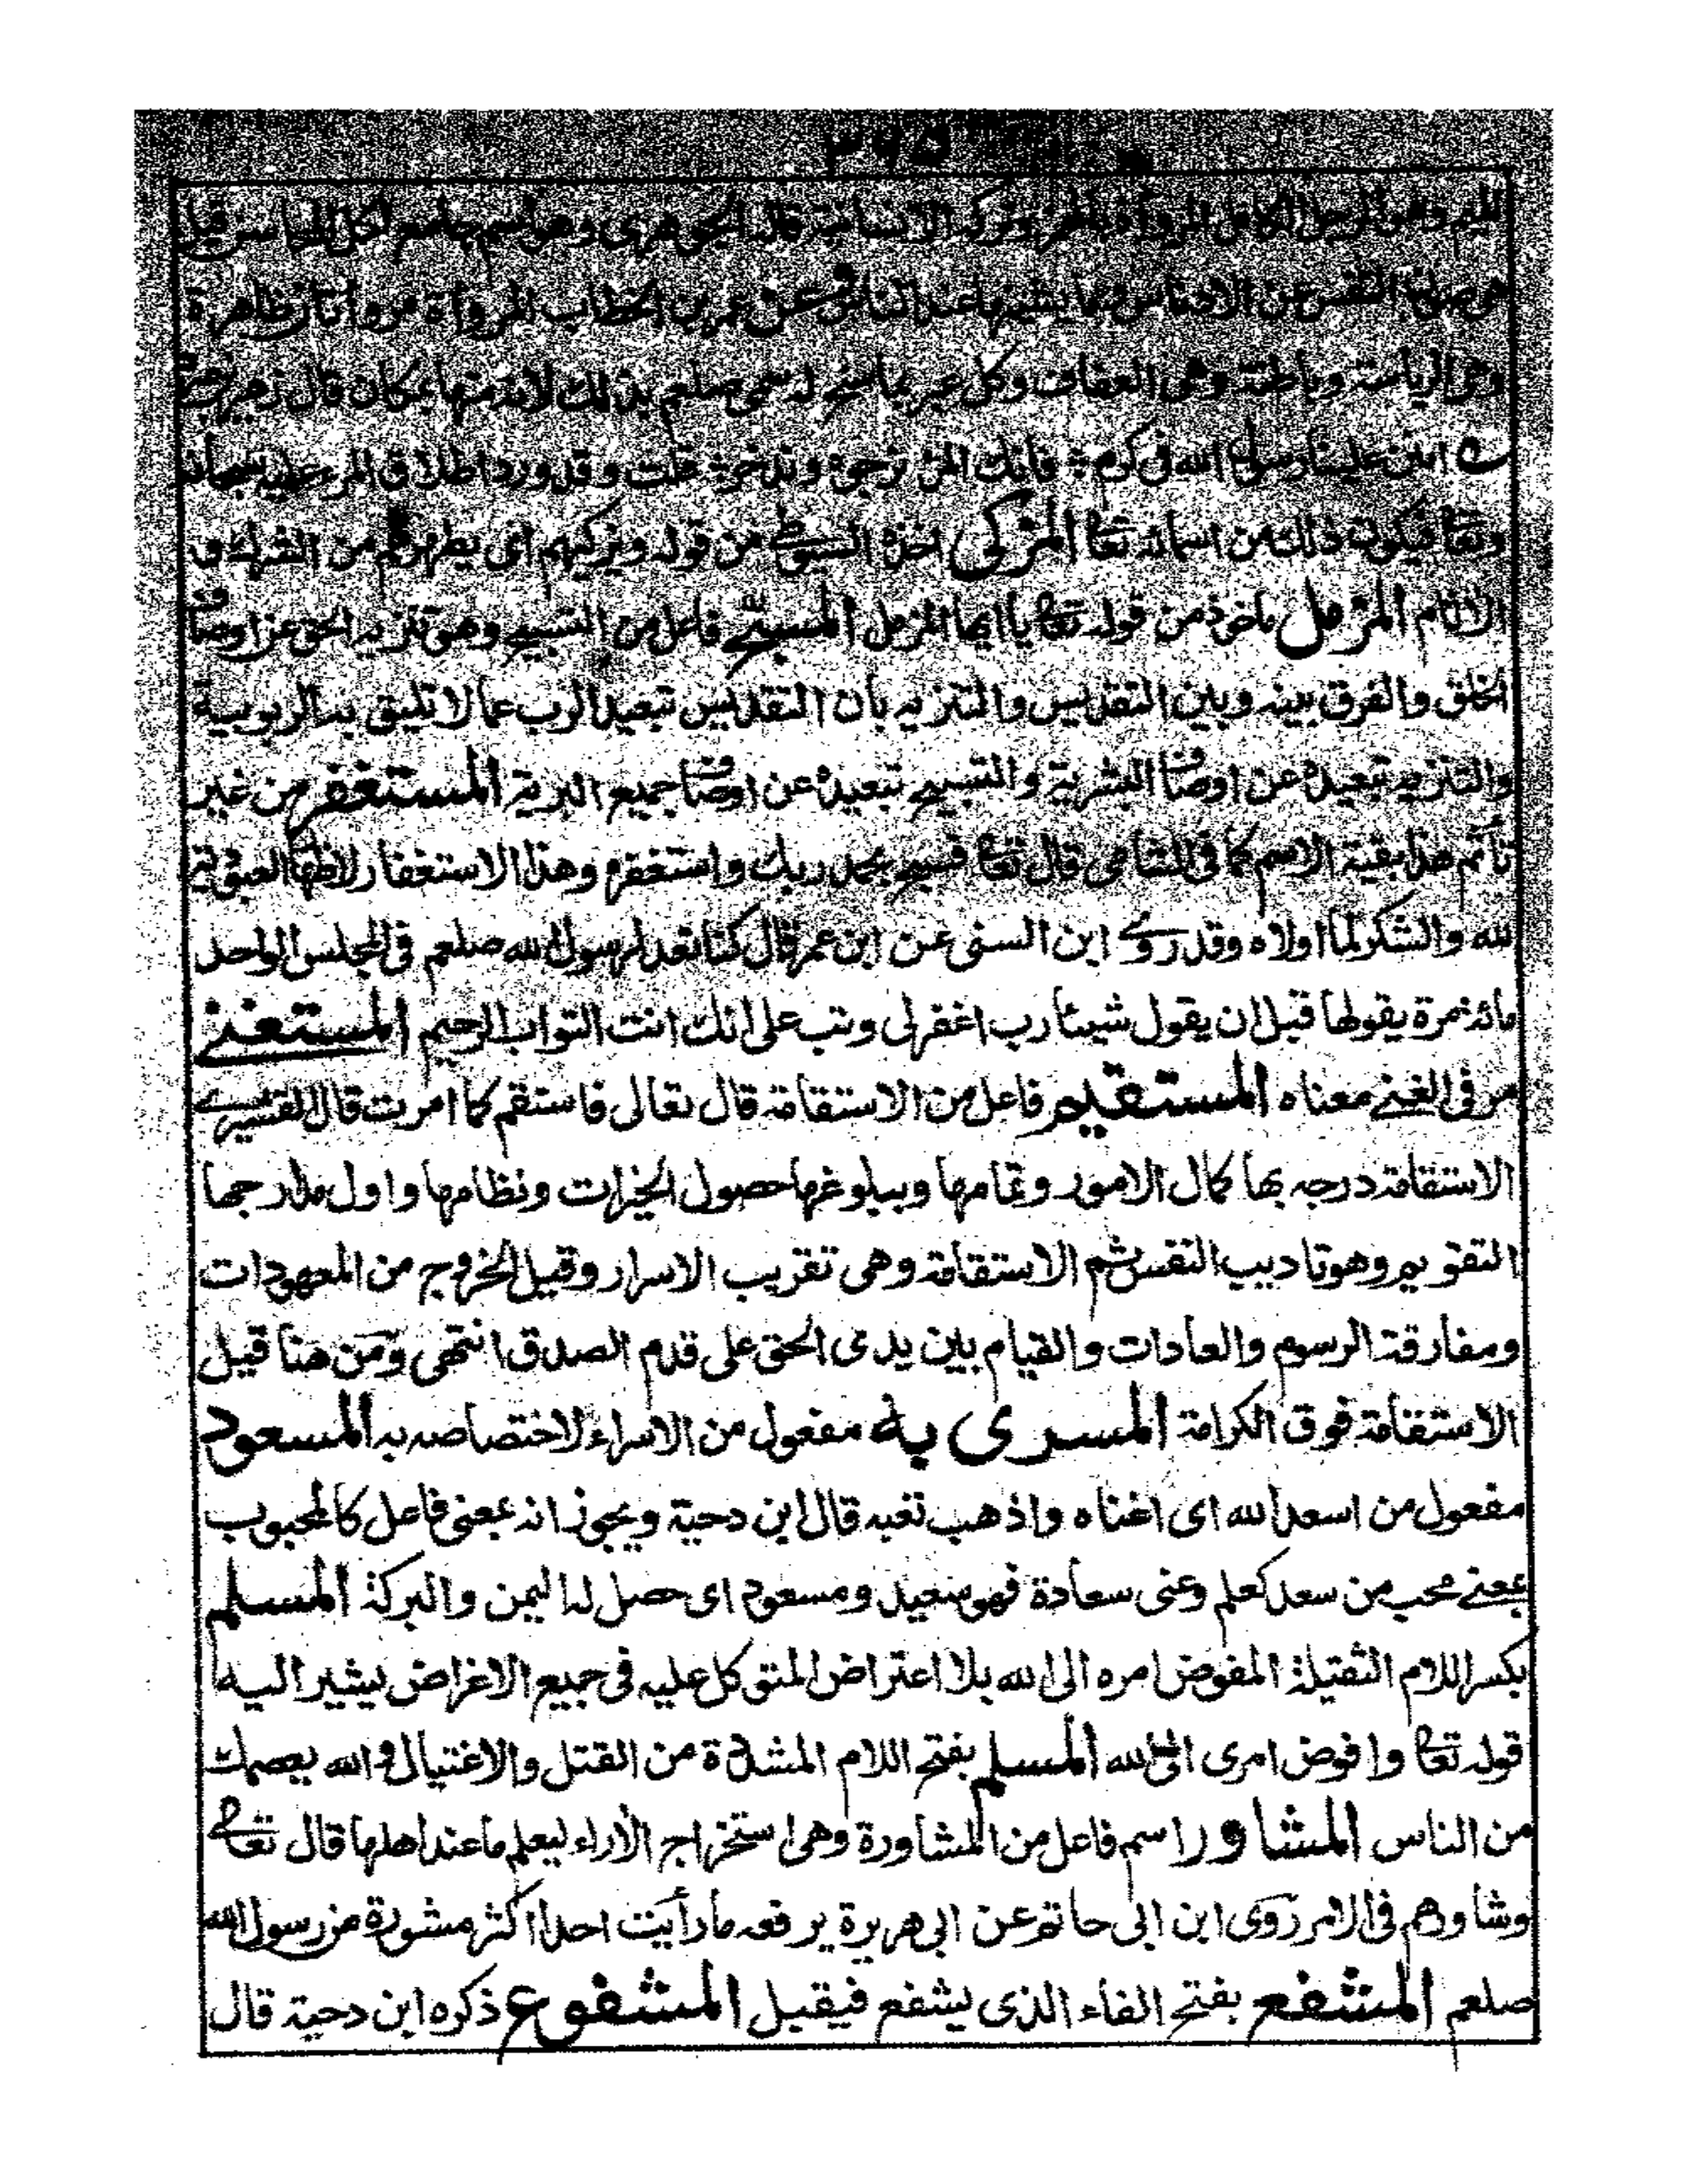 ٣٦٥
الميم وهو الرجل الكامل المروأة بالهمز وتركه الانسانية قال الجوهرى وهو اسم جامع لكل المحاسن قيل
هى صيانة النفس عن الادناس وما يشينها عند الناس وعن عمر بن الخطاب المروأة مروأتان ظاهرة
وهى الرياسة وباطنة وهى العفاف وكل عبر بما سنح له سمى صلعم بذلك لانه منها بمكان قال زهير
امنن علينا رسول الله فى كرم فانك المرء نرجوه وندخره قلت وقد ورد اطلاق المرء عليه سبحانه
وتعا فيكون ذلك من اسمائه تعا المزكى اخذه السيوطى من قوله ويزكيهم اى يطهرهم من الشرك و
الاثام المزمل ماخوذ من قوله تعا يا ايها المزمل المسبح فاعل من التسبيح وهو تنزيه الحق عن اوصاف
الخلق والفرق بينه وبين التقديس والتنزيه بان التقديس تبعيد الرب عما لا تليق به الربوبية
والتنزيه تبعيده عن اوصاف البشرية والتسبيح تبعيده عن اوصاف جميع البرية المستغفر من غير
تأثم هذا بقية الاسم كما فى الشامى قال تعا فسبح بحمد ربك واستغفره وهذا الاستغفار لاظهار العبودية
لله والشكر لما اولاه وقد روى ابن السنى عن ابن عمر قال كنا نعد لرسول الله صلعم فى المجلس الواحد
مائة مرة يقولها قبل ان يقول شيئا رب اغفر لى وتب على انك انت التواب الرحيم المستغنے
مر فى الغنے معناه المستقيم فاعل من الاستقامة قال تعالى فاستقم كما امرت قال القشيرے
الاستقامة درجه بها كمال الامور وتمامها وببلوغها حصول الخيرات ونظامها واول مدارجها
التقويم وهو تاديب النفس ثم الاستقامة وهى تقريب الاسرار وقيل الخروج من المعهودات
ومفارقة الرسوم والعادات والقيام بين يدى الحق على قدم الصدق انتهى ومن هنا قيل
الاستقامة فوق الكرامة المسرى به مفعول من الاسراء لاختصاصه به المسعود
مفعول من اسعد الله اى اغناه واذهب تعبه قال ابن دحية ويجوز انه بمعنى فاعل كالمحبوب
بمعنے محب من سعد كعلم وعنى سعادة فهو سعيد ومسعود اى حصل له اليمن والبركة المسلم
بكسر اللام الثقيلة المفوض امره الى الله بلا اعتراض المتوكل عليه فى جميع الاغراض يشير اليه
قوله تعا وافوض امرى الى الله المسلم بفتح اللام المشددة من القتل والاغتيال والله يعصمك
من الناس المشاور اسم فاعل من المشاورة وهى استخراج الأراء ليعلم ما عند اهلها قال تعا
وشاورهم فى الامر روى ابن ابى حاتم عن ابى هريرة يرفعه ما رأيت احدا اكثر مشورة من رسول الله
صلعم المشفع بفتح الفاء الذى يشفع فيقبل المشفوع ذكره ابن دحية قال